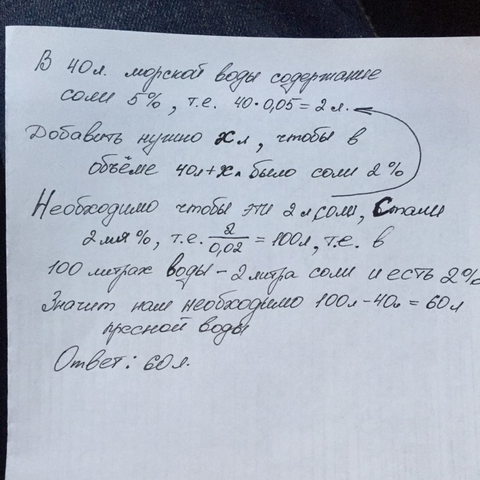 В 40 л. морской воды содержание
соли 5%, т.е. 40·0,05 = 2 л.
Добавить нужно x л, чтобы в
объёме 40л + x л было соли 2%
Необходимо чтобы эти 2 л соли, стали
2 мя %, т.е. 2/0,02 = 100 л, т.е. в
100 литрах воды - 2 литра соли и есть 2%
Значит нам необходимо 100 л - 40 л = 60 л
пресной воды
Ответ: 60 л.